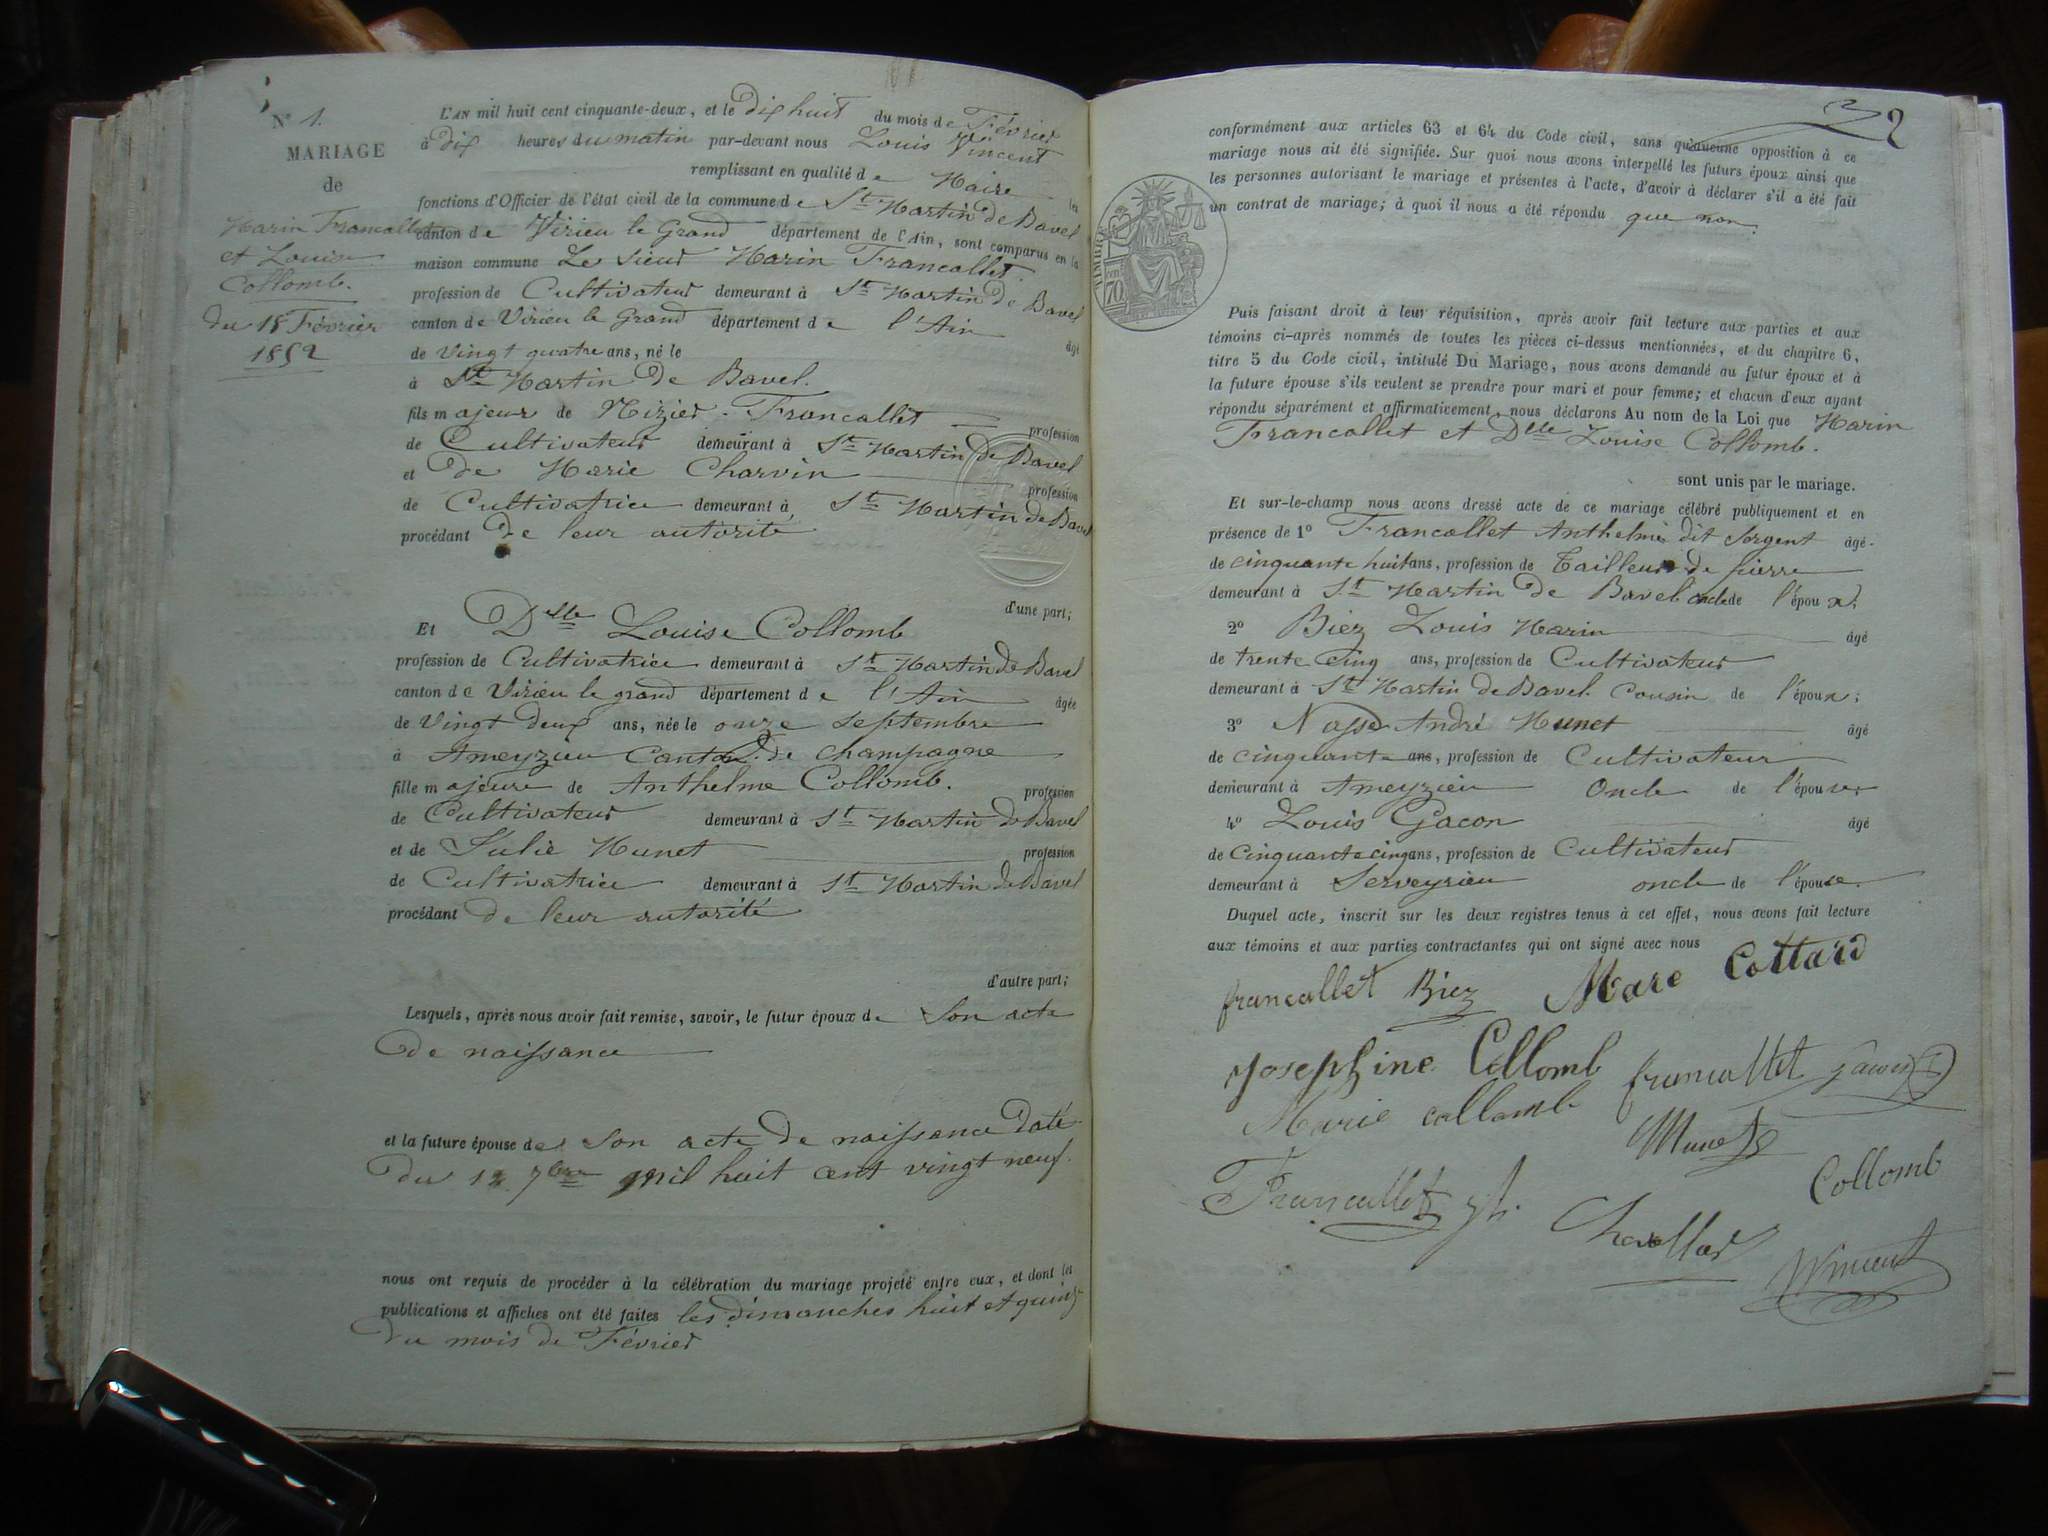 N° 1.
MARIAGE
de
Marin Francallet
et Louise
Collomb.
du 18 Février
1852
L'AN mil huit cent cinquante-deux, et le dix huit du mois de Février
à dix heures du matin par-devant nous Louis Vincent
remplissant en qualité de Maire les
fonctions d'Officier de l'état civil de la commune de St Martin de Bavel
canton de Virieu le Grand département de l'Ain, sont comparus en la
maison commune Le Sieur Marin Francallet.
profession de Cultivateur demeurant à St Martin de Bavel
canton de Virieu le Grand département de l'Ain âgé
de vingt quatre ans, né le
à St Martin de Bavel.
fils majeur de Nizier Francallet profession
de Cultivateur demeurant à St Martin de Bavel
et de Marie Charvin profession
de Cultivatrice demeurant à St Martin de Bavel
procédant de leur autorité
d'une part;
Et Dlle Louise Collomb
profession de Cultivatrice demeurant à St Martin de Bavel
canton de Virieu le grand département de l'Ain âgée
de vingt deux ans, née le onze septembre
à Ameyzieu Canton de Champagne
fille majeure de Anthelme Collomb. profession
de Cultivateur demeurant à St Martin de Bavel
et de Julie Munet profession
de Cultivatrice demeurant à St Martin de Bavel
procédant de leur autorité
d'autre part;
Lesquels, après nous avoir fait remise, savoir, le futur époux de Son acte
de naissance
et la future épouse de Son acte de naissance daté
du 12 7bre mil huit cent vingt neuf.
nous ont requis de procéder à la célébration du mariage projeté entre eux, et dont les
publications et affiches ont été faites les dimanches huit et quinze
du mois de Février
2
conformément aux articles 63 et 64 du Code civil, sans qu'aucune opposition à ce
mariage nous ait été signifiée. Sur quoi nous avons interpellé les futurs époux ainsi que
les personnes autorisant le mariage et présentes à l'acte, d'avoir à déclarer s'il a été fait
un contrat de mariage; à quoi il nous a été répondu que non.
TIMBRE
70
Puis faisant droit à leur réquisition, après avoir fait lecture aux parties et aux
témoins ci-après nommés de toutes les pièces ci-dessus mentionnées, et du chapitre 6,
titre 5 du Code civil, intitulé Du Mariage, nous avons demandé au futur époux et à
la future épouse s'ils veulent se prendre pour mari et pour femme; et chacun d'eux ayant
répondu séparément et affirmativement, nous déclarons Au nom de la Loi que Marin
Francallet et Dlle Louise Collomb.
sont unis par le mariage.
Et sur-le-champ nous avons dressé acte de ce mariage célébré publiquement et en
présence de 1° Francallet Anthelme dit Sergent âgé
de cinquante huit ans, profession de Tailleur de pierre
demeurant à St Martin de Bavel oncle de l'époux;
2° Biez Louis Marin âgé
de trente cinq ans, profession de Cultivateur
demeurant à St Martin de Bavel. Cousin de l'époux;
3° André Munet âgé
de cinquante ans, profession de Cultivateur
demeurant à Ameyzieu Oncle de l'épouse
4° Louis Gacon âgé
de cinquante cinq ans, profession de Cultivateur
demeurant à Serveyrieu oncle de l'épouse.
Duquel acte, inscrit sur les deux registres tenus à cet effet, nous avons fait lecture
aux témoins et aux parties contractantes qui ont signé avec nous
francallet Biez Mare Cottard
Josephine Collomb francallet
Marie collomb
Munet
Collomb
Francallet
Vincent